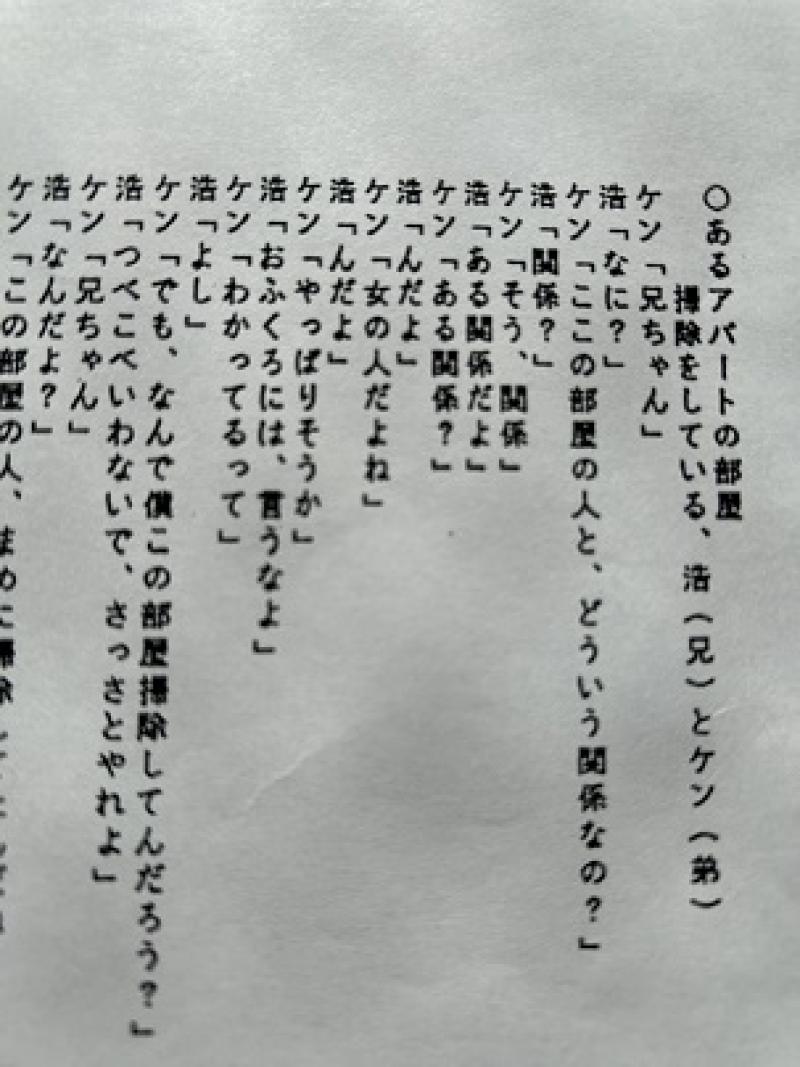 ○あるアパートの部屋
掃除をしている、浩（兄）とケン（弟）
ケン「兄ちゃん」
浩「なに？」
ケン「ここの部屋の人と、どういう関係なの？」
浩「関係？」
ケン「そう、関係」
浩「ある関係だよ」
ケン「ある関係？」
浩「んだよ」
ケン「女の人だよね」
浩「んだよ」
ケン「やっぱりそうか」
浩「おふくろには、言うなよ」
ケン「わかってるって」
浩「よし」
ケン「でも、なんで僕この部屋掃除してんだろう？」
浩「つべこべいわないで、さっさとやれよ」
ケン「兄ちゃん」
浩「なんだよ？」
ケン「この部屋の人、まめに掃除し